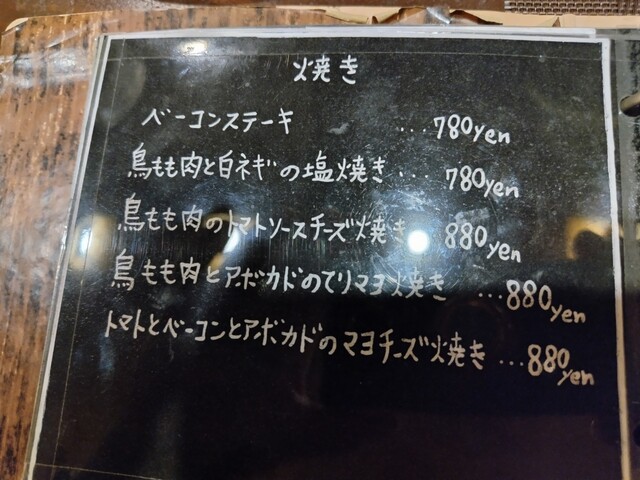 焼き
ベーコンステーキ ...780yen
鳥もも肉と白ネギの塩焼き...780yen
鳥もも肉のトマトソースチーズ焼き 880yen
鳥もも肉とアボカドのてりマヨ焼き ...880yen
トマトとベーコンとアボカドのマヨチーズ焼き...880yen